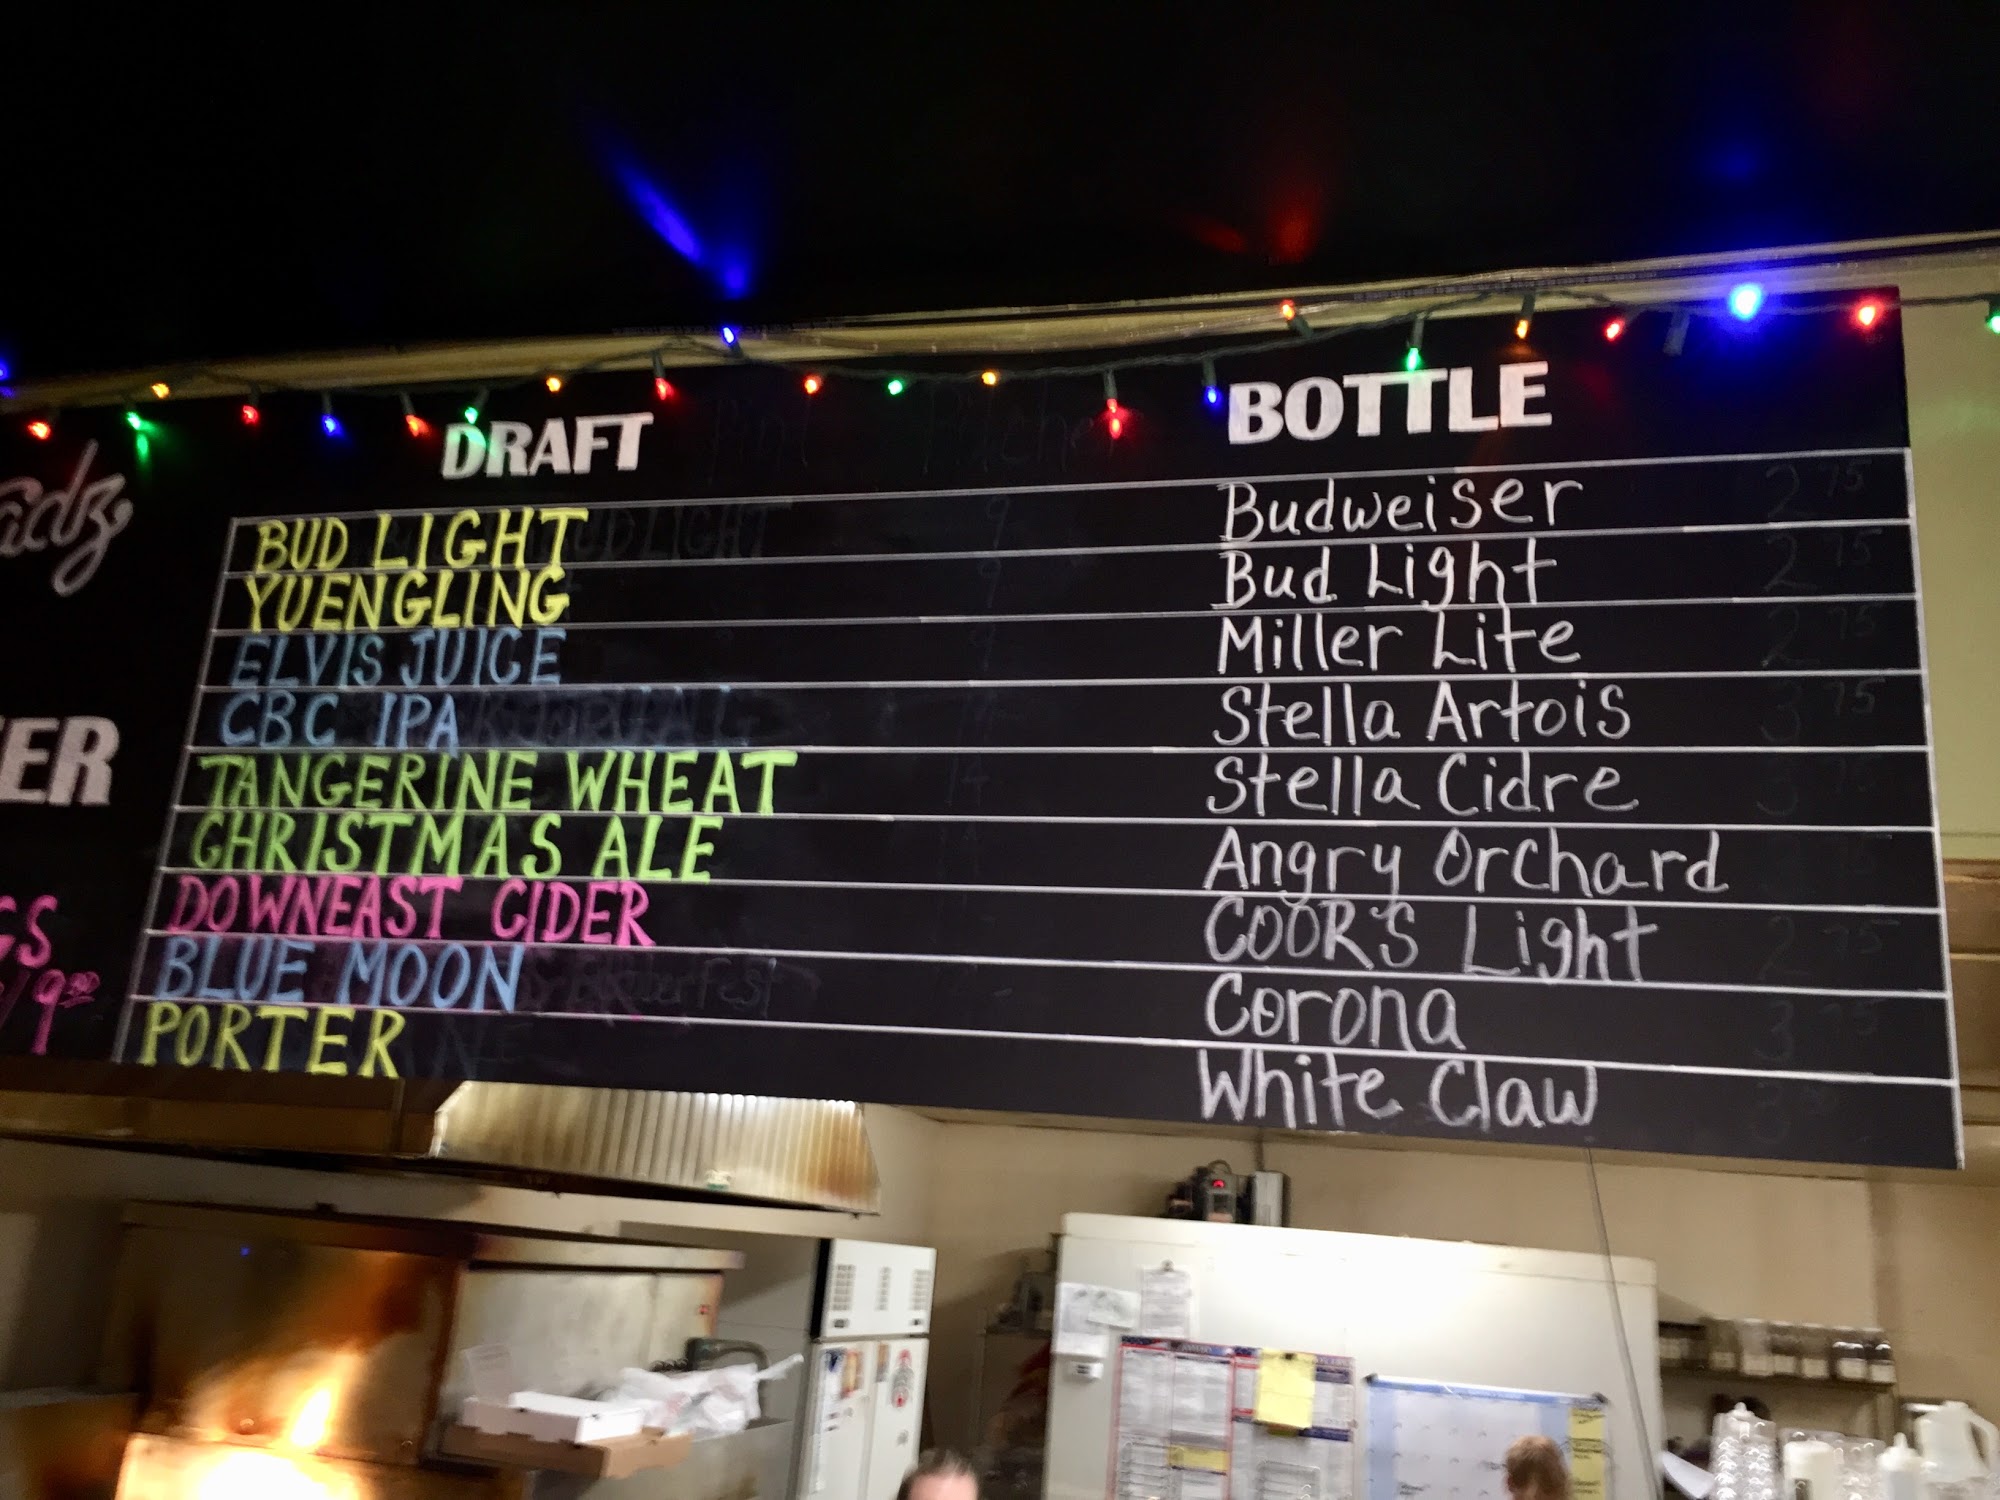 DRAFT
BUD LIGHT
YUENGLING
ELVIS JUICE
CBC IPA
TANGERINE WHEAT
CHRISTMAS ALE
DOWNEAST CIDER
BLUE MOON
PORTER
BOTTLE
Budweiser
Bud Light
Miller Lite
Stella Artois
Stella Cidre
Angry Orchard
COOR'S Light
Corona
White Claw